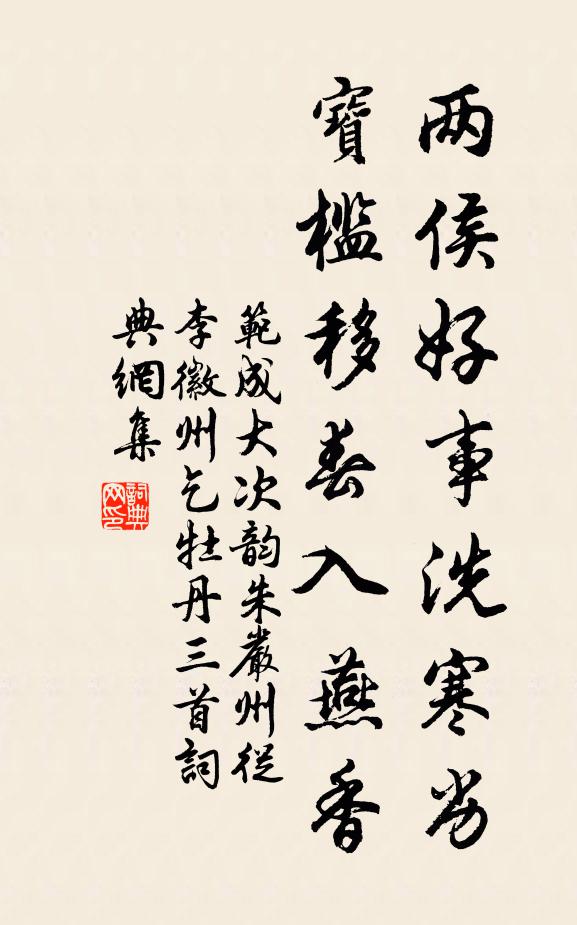 两侯好事洗寒劣
寶檻移春入燕香
範成大次韵朱嚴州從
李徽州乞牡丹三首詞
典網集
詞典网印